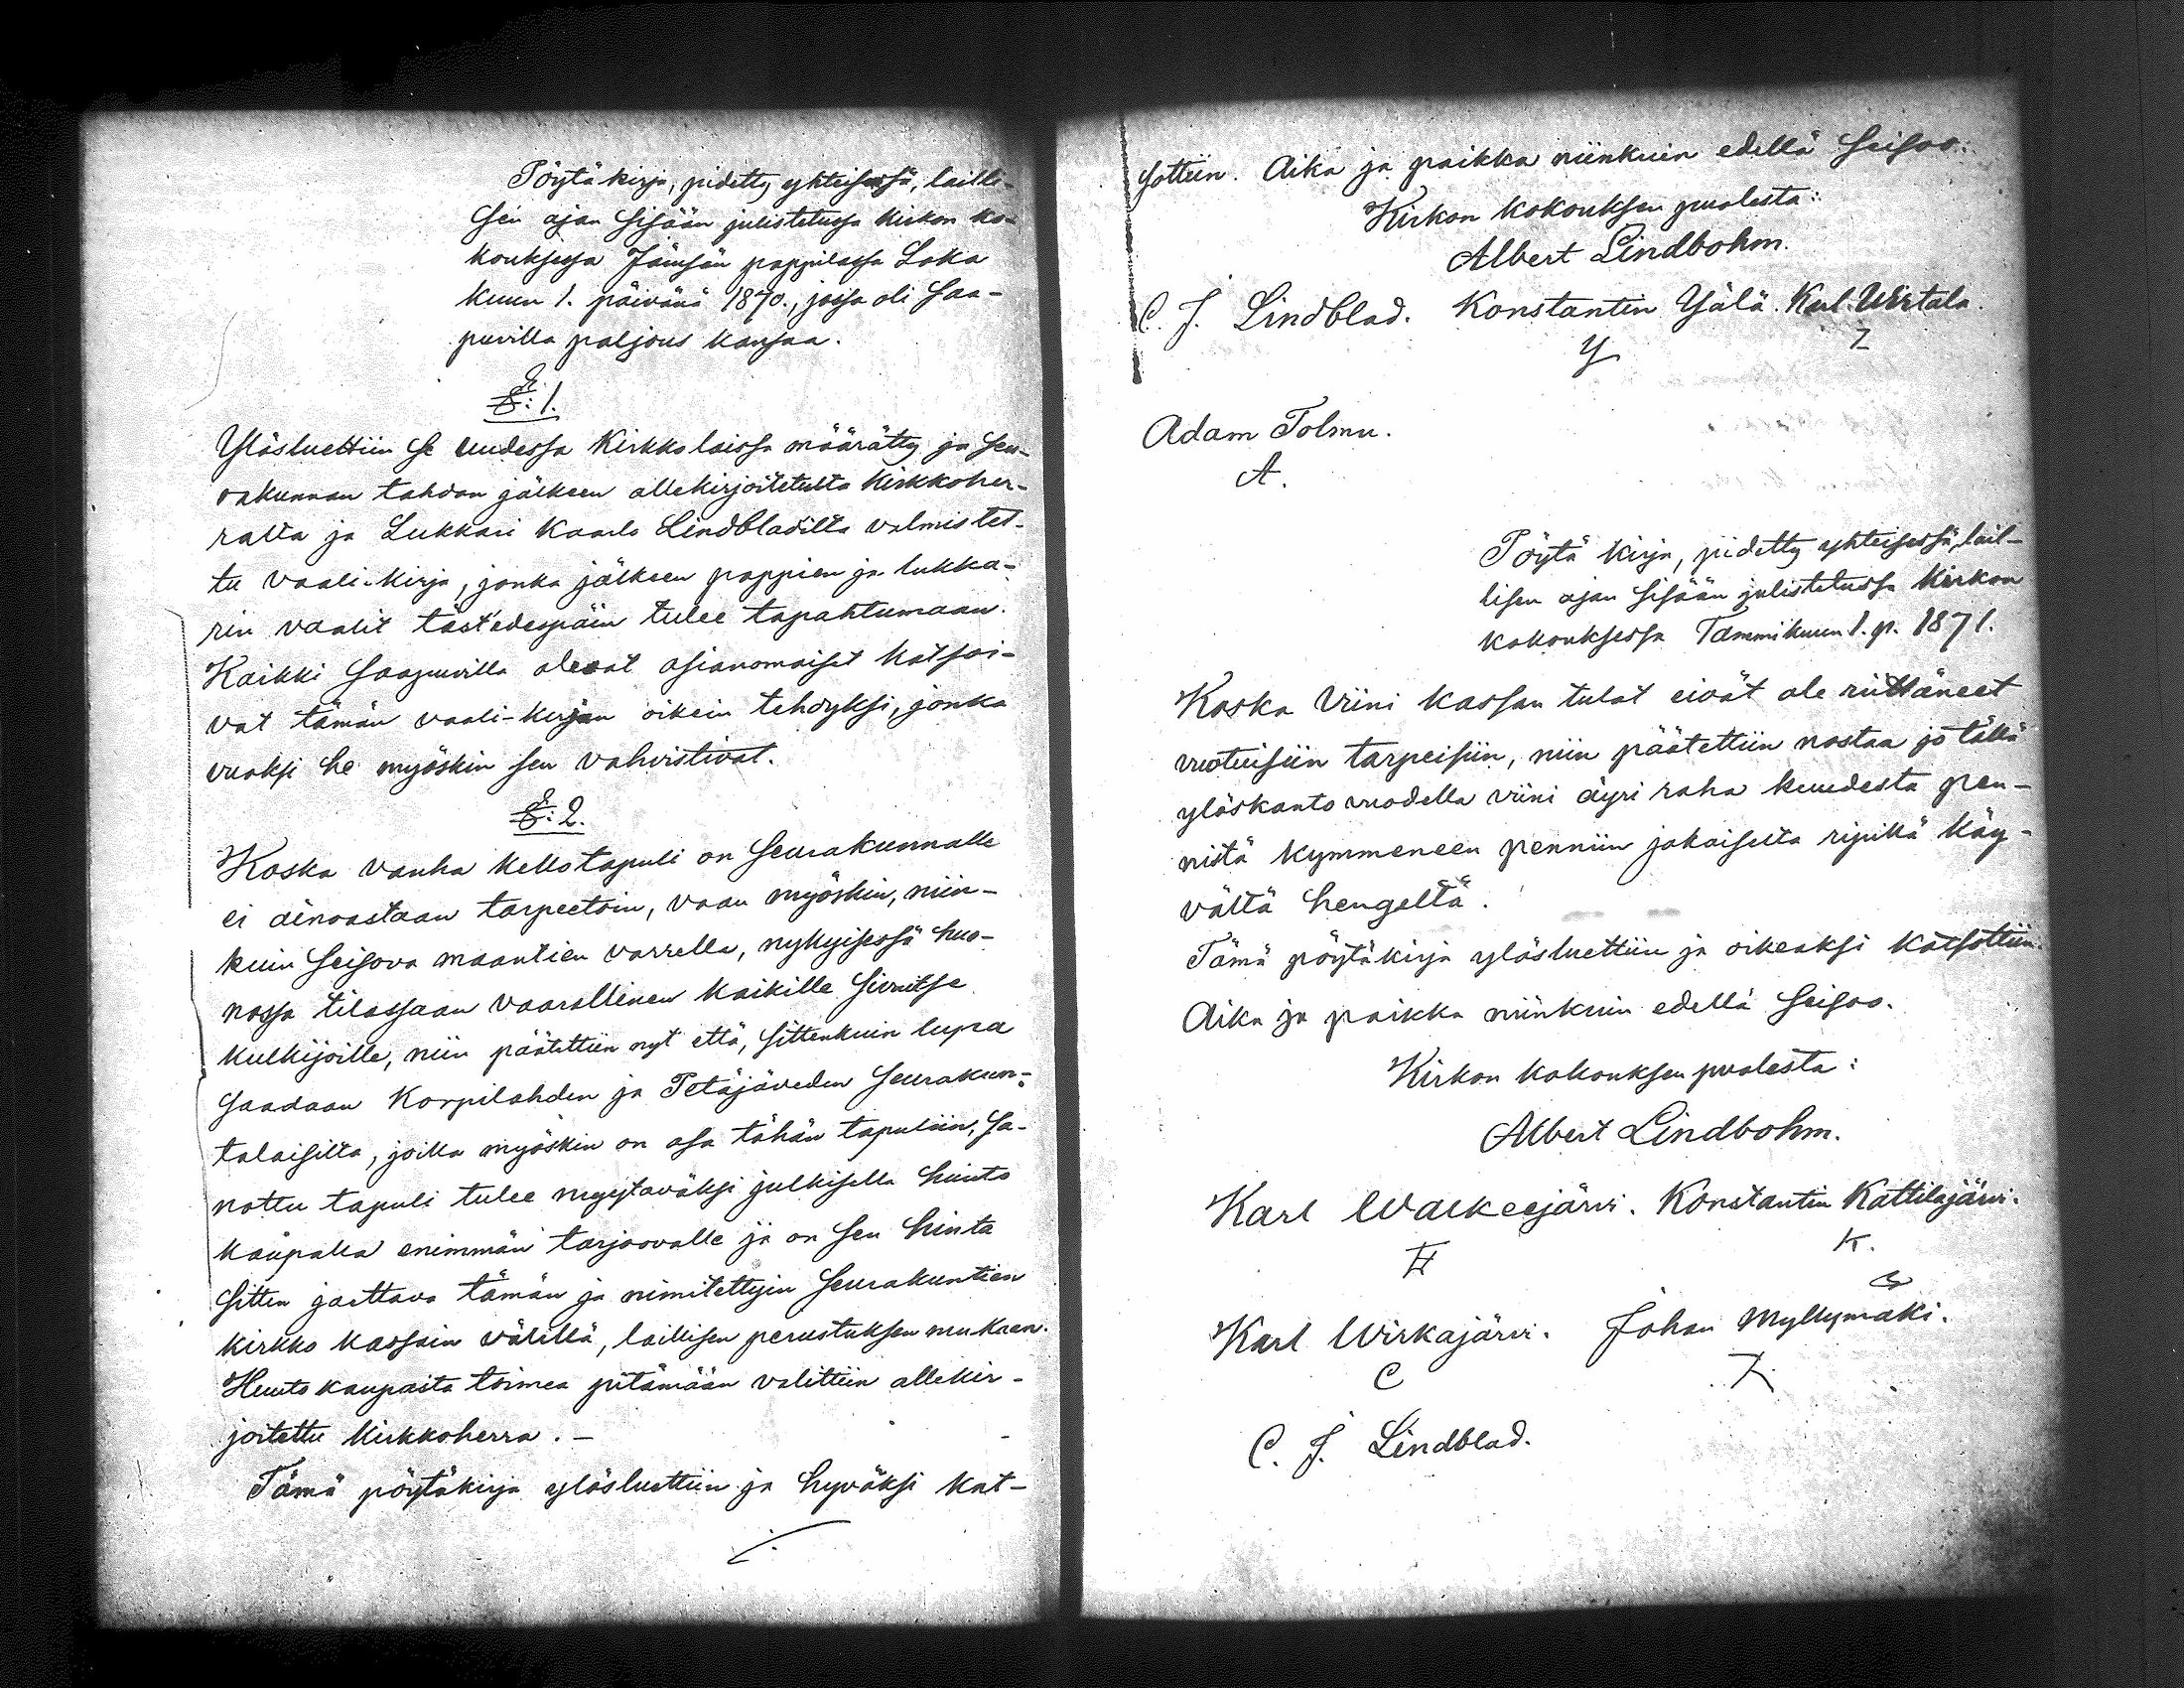 Pöytä kirja, pidetty yhteisessä, lailli-
sen ajan sisään julistetussa kirkon ko-
kouksessa Jämsän pappilassa Loka
kuun 1. päivänä 1870., jossa oli saa-
puvilla paljous kansaa.
§: 1.
Ylösluettiin se uudessa Kirkkolaissa määrätty ja seu-
rakunnan tahdon jälkeen allekirjoitetulta Kirkkoher-
ralta ja Lukkari Kaarlo Lindbladilta valmistet-
tu vaali-kirja, jonka jälkeen pappien ja lukka-
rin vaalit täst'edespäin tulee tapahtumaan.
Kaikki saapuvilla olevat asianomaiset katsoi-
vat tämän vaali-kirjan oikein tehdyksi, jonka
vuoksi he myöskin sen vahvistivat.
§: 2.
Koska vanha kellotapuli on seurakunnalle
ei ainoastaan tarpeetoin, vaan myöskin, niin-
kuin seisova maantien varrella, nykyisessä huo-
nossa tilassaan vaarallinen kaikille sivuitse
kulkijoille, niin päätettiin nyt että, sittenkuin lupa
saadaan Korpilahden ja Petäjäveden seurakun-
talaisilta, joilla myöskin on osa tähän tapuliin, sa-
nottu tapuli tulee myytäväksi julkisella huuto
kaupalla enimmän tarjoovalle ja on sen hinta
sitten jaettava tämän ja nimitettyin seurakuntien
kirkko kassain välillä, laillisen perustuksen mukaan.
Huuto kaupasta toimea pitämään valittiin allekir-
joitettu Kirkkoherra. -
Tämä pöytäkirja ylösluettiin ja hyväksi kat-
sottiin. Aika ja paikka niinkuin edellä seisoo:
Kirkon kokouksen puolesta:
Albert Lindbohm.
C. J. Lindblad. Konstantin Yälä. Karl Wirtala.
Y Z
Adam Tolmu.
A.
Pöytä kirja, pidetty yhteisessä, lail-
lisen ajan sisään julistetussa Kirkon
kokouksessa Tammikuun 1. p. 1871.
Koska Viini kassan tulot eivät ole riittäneet
vuotuisiin tarpeisiin, niin päätettiin nostaa jo tällä
ylöskanto vuodella viini äyri raha kuudesta pen-
nistä kymmeneen penniin jokaiselta ripillä käy-
vältä hengeltä.
Tämä pöytäkirja ylösluettiin ja oikeaksi katsottiin.
Aika ja paikka niinkuin edellä seisoo.
Kirkon kokouksen puolesta:
Albert Lindbohm.
Karl Walkeejärvi. Konstantin Kattilajärvi.
K.
Karl Wirkajärvi. Johan Myllymäki.
C
C. J. Lindblad.